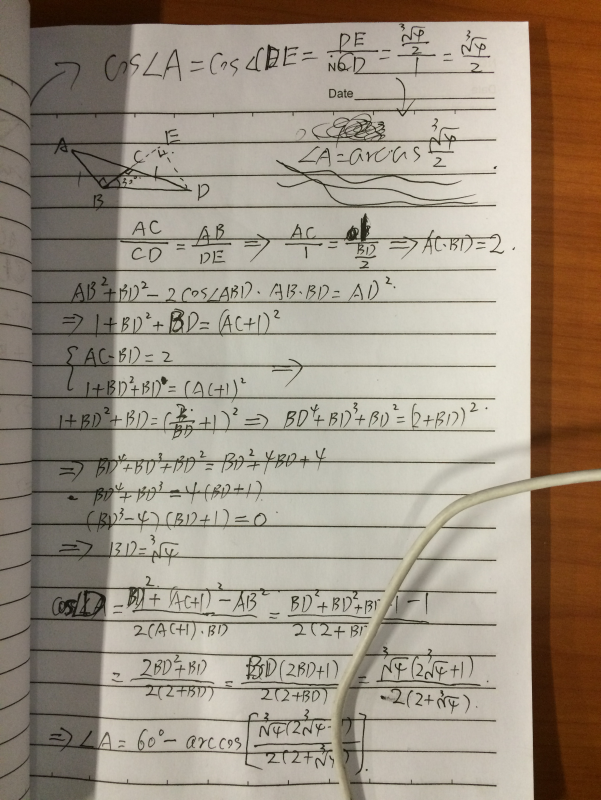 → cos∠A = cos∠CDE = DE/CD = (∛4/2)/1 = ∛4/2
NO.
Date
∠A = arccos ∛4/2
A
E
C
1
1
B
30°
D
AC/CD = AB/DE ⇒ AC/1 = 1/(BD/2) ⇒ AC·BD = 2.
AB² + BD² - 2cos∠ABD · AB·BD = AD².
⇒ 1 + BD² + BD = (AC+1)²
{ AC·BD = 2
1 + BD² + BD = (AC+1)² ⇒
1 + BD² + BD = (2/BD + 1)² ⇒ BD⁴ + BD³ + BD² = (2+BD)².
⇒ BD⁴ + BD³ + BD² = BD² + 4BD + 4
BD⁴ + BD³ = 4·(BD+1).
(BD³-4)(BD+1) = 0
⇒ BD = ∛4
cos∠D = (BD² + (AC+1)² - AB²)/(2(AC+1)·BD) = (BD² + BD² + BD+1 - 1)/(2(2+BD
= (2BD² + BD)/(2(2+BD)) = (BD(2BD+1))/(2(2+BD)) = (∛4(2∛4+1))/(2(2+∛4)).
⇒ ∠A = 60° - arccos[(∛4(2∛4+1))/(2(2+∛4))].